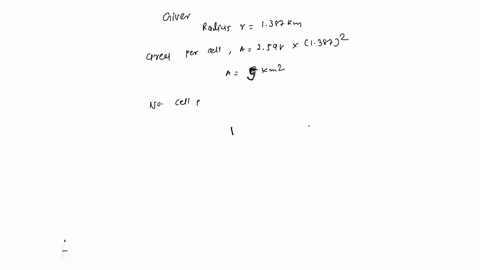 Given
Radius r = 1.387 km
Area per cell, A = 2.598 × (1.387)²
A = 5 km2
No. cell p